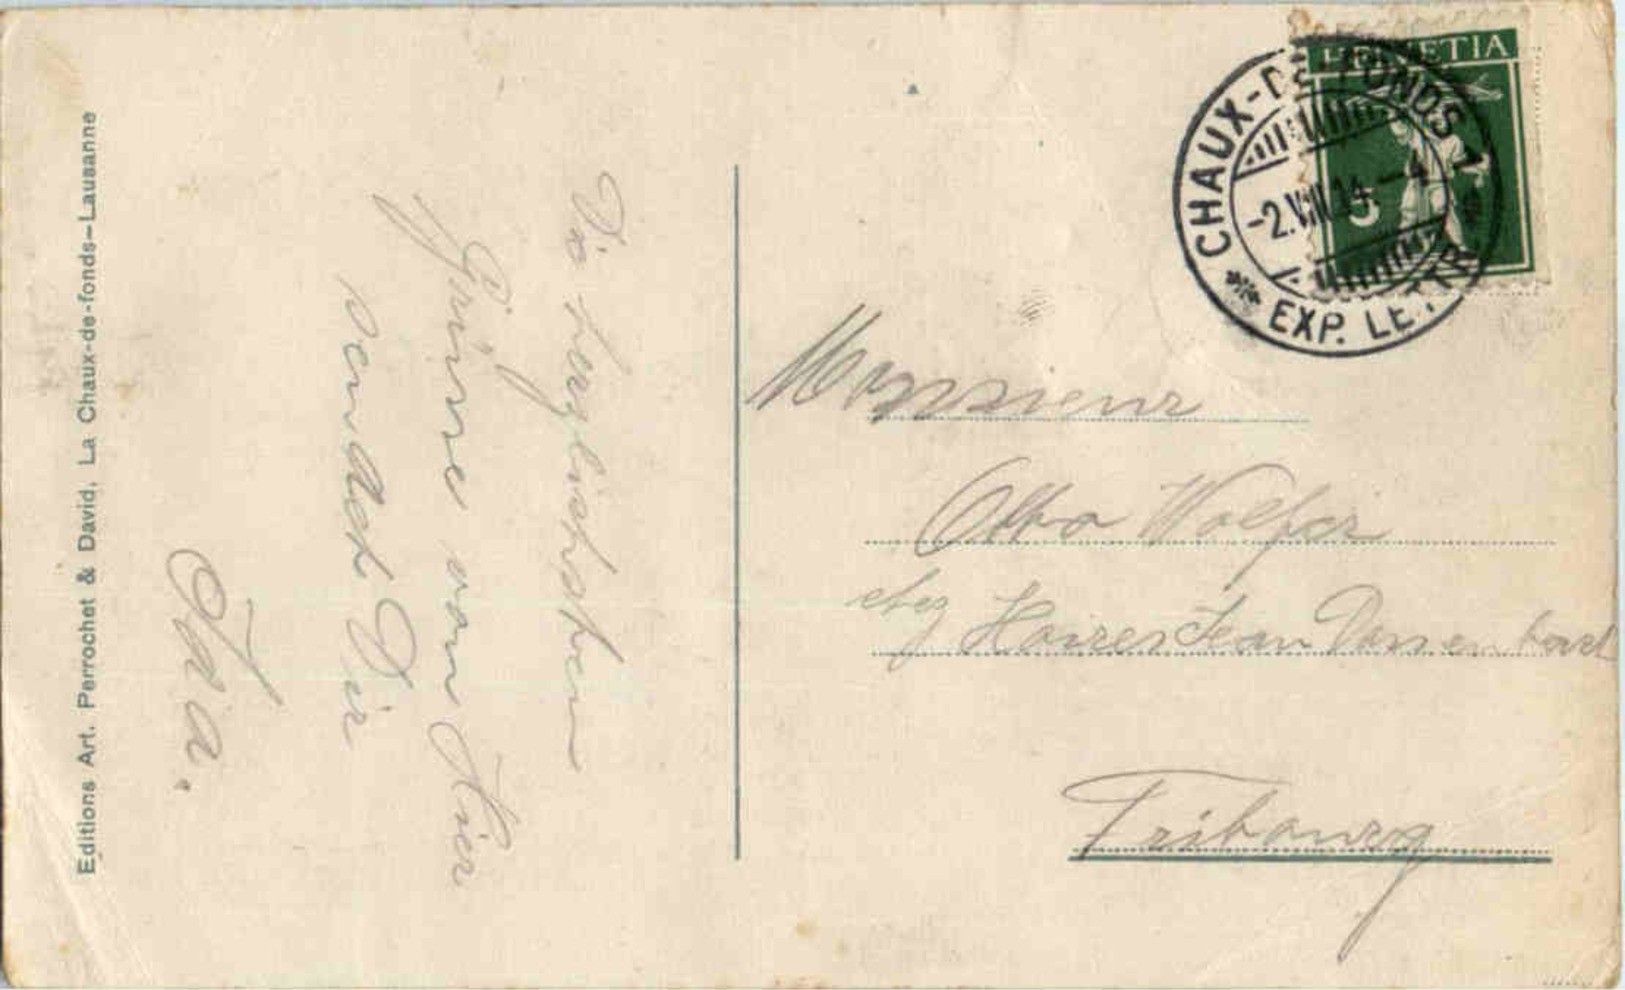 Editions Art. Perrochet & David, La Chaux-de-fonds–Lausanne
Die herzlichsten
Grüsse von hier
sendet Dir
Ida.
HELVETIA
5
CHAUX-DE-FONDS 1
-2.VIII.14.-4
EXP. LETTR.
Monsieur
Otto Wolfer
chez Jean
Fribourg